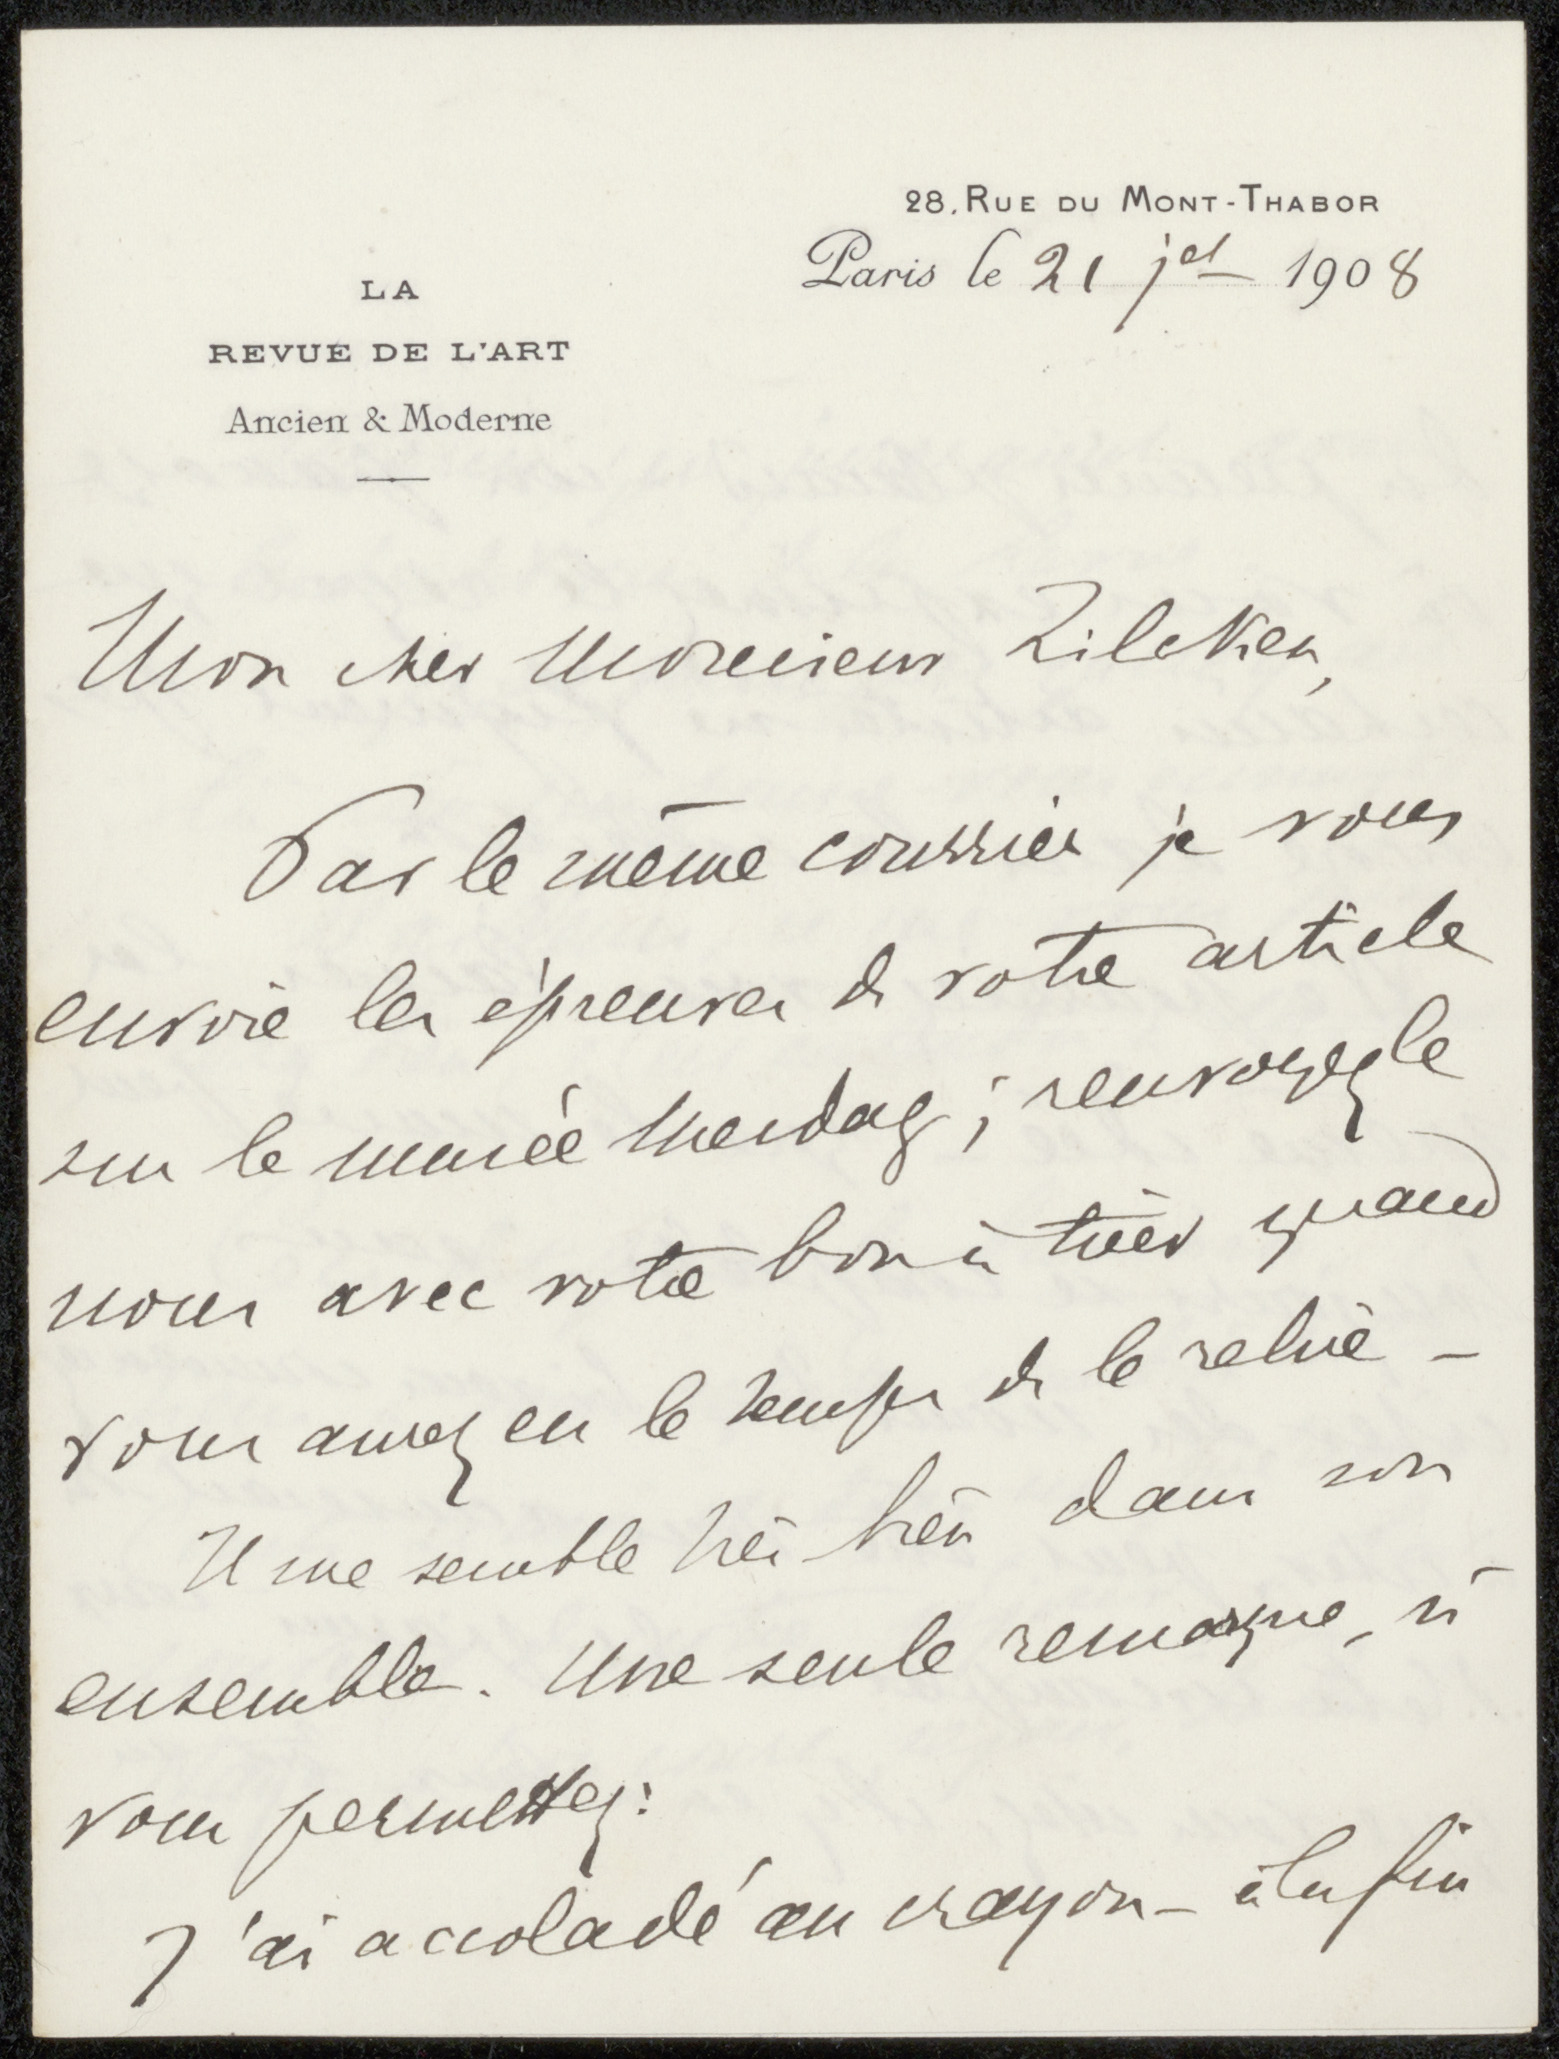 28, RUE DU MONT-THABOR
Paris le 21 jet 1908
LA
REVUE DE L'ART
Ancien & Moderne
Mon cher Monsieur Zilcken,
Par le même courrier je vous
envoie les épreuves de votre article
sur le musée Mesdag ; renvoyez le
nous avec votre bon à tirer quand
vous aurez eu le temps de le relire –
Il me semble très bien dans son
ensemble. Une seule remarque, si
vous permettez :
J'ai accoladé au crayon – à la fin